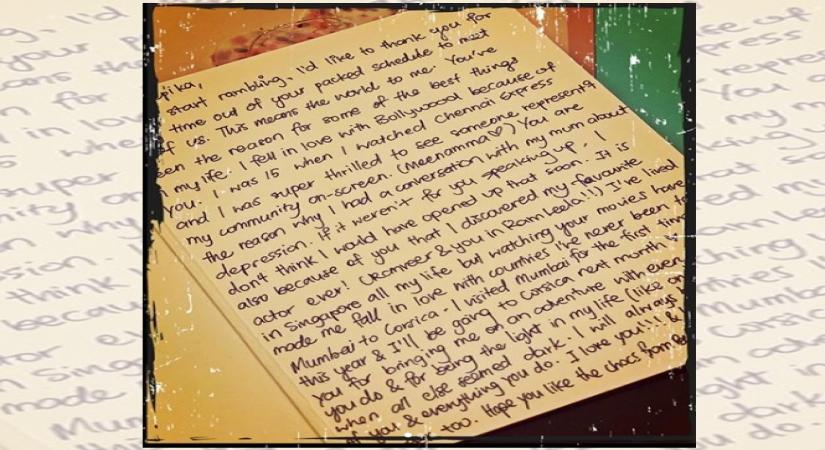 start rambling, I'd like to thank you for
time out of your packed schedule to meet
of us. This means the world to me. You've
een the reason for some of the best things
my life. I fell in love with Bollywood because of
you. I was 15 when I watched Chennai Express
and I was super thrilled to see someone represent
my community on-screen. (Meenamma♡) You are
the reason why I had a conversation with my mum about
depression. If it weren't for you speaking up - I
don't think I would have opened up that soon. It is
also because of you that I discovered my favourite
actor ever! (Ranveer & you in Ram Leela!!) I've lived
in Singapore all my life but watching your movies have
made me fall in love with countries I've never been to
Mumbai to Corsica. I visited Mumbai for the first time
this year & I'll be going to Corsica next month
you for bringing me on an adventure with every
you do & for being the light in my life (like
when all else seemed dark. I will always
of you & everything you do. I love you!!! &
too. Hope you like the chocs from